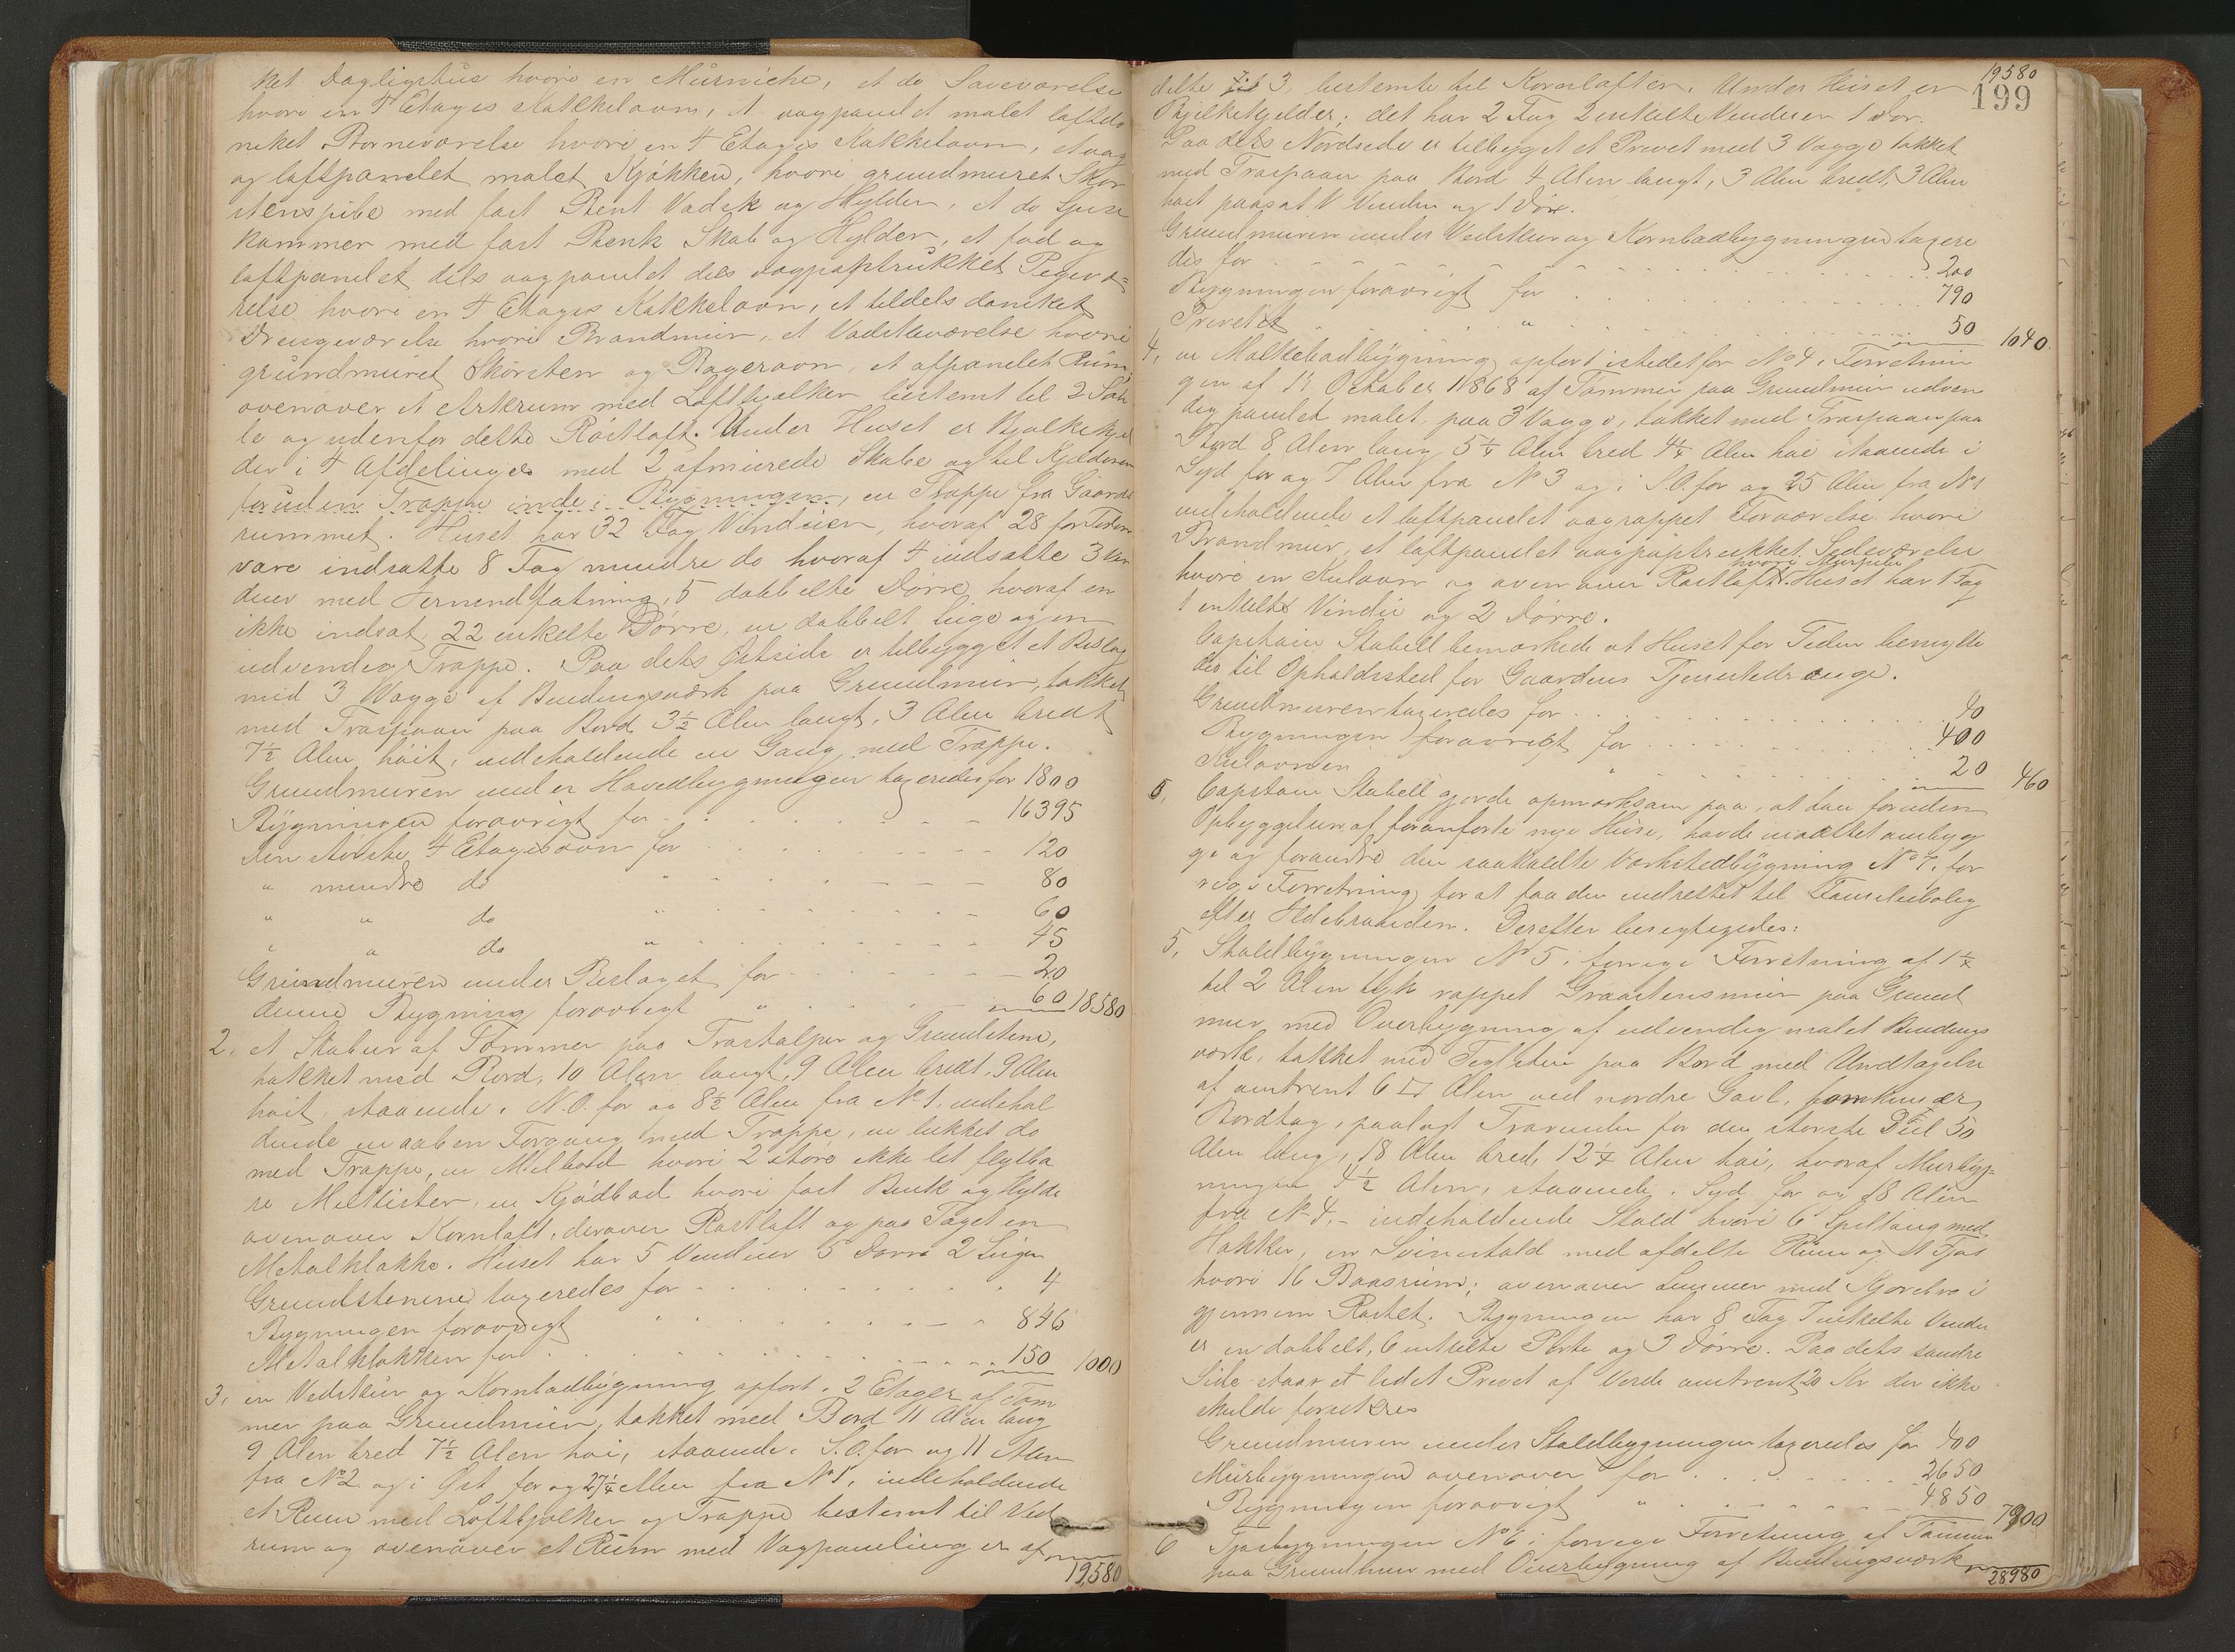 ket Dagligstue hvori en Murniche, et do Soveværelse
hvori en 4 Etages Kakkelovn, et vægpanelet malet loftdo
neket Borneværelse hvori en 4 Etages Kakkelovn, et væg
og loftpanelet malet Kjøkken, hvori grundmuret Skor
stenspibe med fast Benk Vadsk og Hylder, et do Spise
kammer med fast Benk Skab og Hylder, et fod og
loftpanelet dels vægpanelet dels vægpaptrukket Pigevæ=
relse hvori en 4 Etages Kakkelovn, et tildels donneket
Drengeværelse hvori Brandmur, et Vadskeværelse hvori
grundmuret Skorsten og Bagerovn, et afpanelet Rum,
ovenover et Arkrum med Loftbjælker bestemt til 2 Sov
le og udenfor dette Røstloft. Under Huset er Bjelkekjel
der i 4 Afdelinger med 2 afmurede Skabe og til Kjelderen
foruden Trappe inde i Bygningen, en Trappe fra Gaards
rummet. Huset har 32 Fag Vinduer, hvoraf 28 for Tiden
vare indsatte 8 Fag mindre do hvoraf 4 indsatte 3 Vin
duer med Jernindfatning, 5 dobbelte Dørre hvoraf en
ikke indsat, 22 enkelte Dørre, en dobbelt Luge og en
udvendig Trappe. Paa dets Østside er tilbygget et Bislag
med 3 Vægge af Bindingsværk paa Grundmur, takket
med Træspaan paa Bord 3½ Alen langt, 3 Alen bredt
7½ Alen høit, indeholdende en Gang med Trappe.
Grundmuren under Hovedbygningen taxeredes for 1800
Bygningen forøvrigt for 16395
den største 4 Etagesovn for 120
" mindre do " 80
" " do " 60
" " do " 45
Grundmuren under Bislaget for 20
denne Bygning forøvrigt " 60 18580
2. et Stabur af Tømmer paa Træstolper og Grundstene,
takket med Bord, 10 Alen langt, 9 Alen bredt, 9 Alen
høit, staaende i N.O. for og 8½ Alen fra No 1. indehol
dende en aaben Forgang med Trappe, en lukket do
med Trappe, en Melbod hvori 2 store ikke let flytba
re Melkister, en Kjødbod hvori fast Benk og Hylde
ovenover Kornloft, derover Røstloft og paa Taget en
Metalklokke. Huset har 5 Vinduer 5 Dørre 2 Luger
Grundstenene taxeredes for 4
Bygningen forøvrigt " 846
Metalklokken for 150 1000
3. en Vedskur og Kornbodbygning opført i 2 Etager af Tøm
mer paa Grundmur, takket med Bord 11 Alen lang
9 Alen bred 7½ Alen høi, staaende i S.O. for og 11 Alen
fra No 2 og i Øst for og 27¼ Alen fra No 1. indeholdende
et Rum med Loftbjelker og Trappe bestemt til Ved
rum og ovenover et Rum med Vægpaneling er af
19,580
19580
199
delte i 3, bestemte til Kornlofter. Under Huset er
Bjelkekjelder; det har 2 Fag 2 enkelte Vinduer 1 Dør.
Paa dets Nordside er tilbygget et Privet med 3 Vægge takket
med Træspaan paa Bord 4 Alen langt, 3 Alen bredt, 3 Alen
høit paasat 1 Vindu og 1 Dør.
Grundmuren under Vedskur og Kornbodbygningen taxere
des for 200
Bygningen forøvrigt for 790
Privetet " 50 1040.
4. en Melkebodbygning opført istedetfor No 4 i Forretnin
gen af 15 October 1868 af Tømmer paa Grundmur udven
dig panelet malet paa 3 Vægge, takket med Træspaan paa
Bord 8 Alen lang 5¼ Alen bred 4¼ Alen høi staaende i
Syd for og 7 Alen fra No 3 og i S.O. for og 25 Alen fra No 1
indeholdende et loftpanelet vægrappet Forværelse hvori
Brandmur, et loftpanelet vægpaptrukket Sideværelse
hvori Murpibe
hvori en Kulovn og ovenover Røstloft. Huset har 1 Fag
1 enkelte Vindu og 2 Dørre.
Capitain Stabell bemærkede at Huset for Tiden benytte
des til Opholdssted for Gaardens Tjenestedrenge.
Grundmuren taxeredes for 40
Bygningen forøvrigt for 400
Kulovnen " 20 460
Capitain Stabell gjorde opmærksom paa, at han foruden
Opbyggelsen af foranførte nye Huse, havde maattet ombyg
ge og forandre den saakaldte Værkstedbygning No 7. for
rige Forretning for at faa den indrettet til Familiebolig
efter Ildebranden. Derefter besigtigedes:
5. Staldbygningen No 5 i forrige Forretning af 1¼
til 2 Alen tyk rappet Graastensmur paa Grund
mur med Overbygning af udvendig malet Bindings
værk, takket med Teglsten paa Bord med Undtagelse
af omtrent 6 □ Alen ved nordre Gavl, som kun er
Bordtag, paalagt Trærender for den største Deel 50
Alen lang, 18 Alen bred, 12¼ Alen høi, hvoraf Murbyg=
ningen 4½ Alen, staaende i Syd for og 18 Alen
fra No 4. indeholdende Stald hvori 6 Spiltoug med
Hækker, en Svinestald med afdelte Rum og et Fjøs
hvori 16 Baasrum; ovenover Lemmer med Kjørebro i
gjennem Røstet. Bygningen har 8 Fag 7 enkelte Vindu
er en dobbelt, 6 enkelte Porte og 3 Dørre. Paa dets søndre
Side staar et lidet Privet af Værdi omtrent 20 Kr der ikke
skulde forsikres
Grundmuren under Staldbygningen taxeredes for 400
Murbygningen ovenover for 2650
Bygningen forøvrigt " 4850 7900
6 Fjøsbygningen No 6 i forrige Forretning af Tømmer
paa Grundmur med Overbygning af Bindingsværk
28980